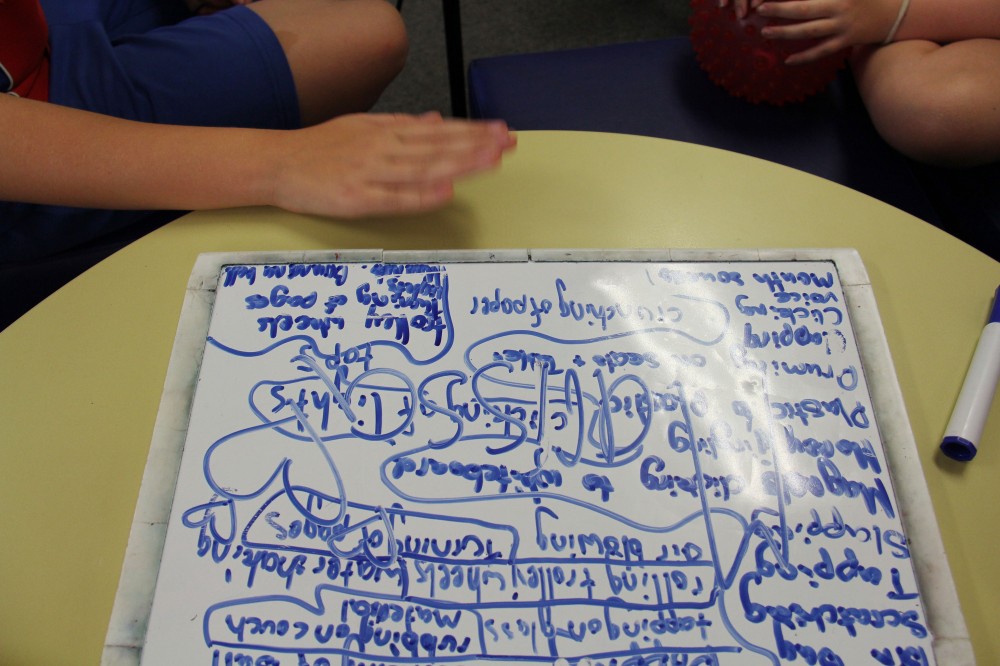 Scratching
tapping on glass
rubbing on couch
material
Tapping
rolling trolley wheels
water shaking
Slapping
air blowing
turning
of pages
Magnets clicking to whiteboard
Money jingling
Plastic to plastic
clicking
lights
Druming on seats + table
taps
Clapping
Clicking
crunching of paper
trolley wheels
flipping of pages
voice
Mouth sounds!